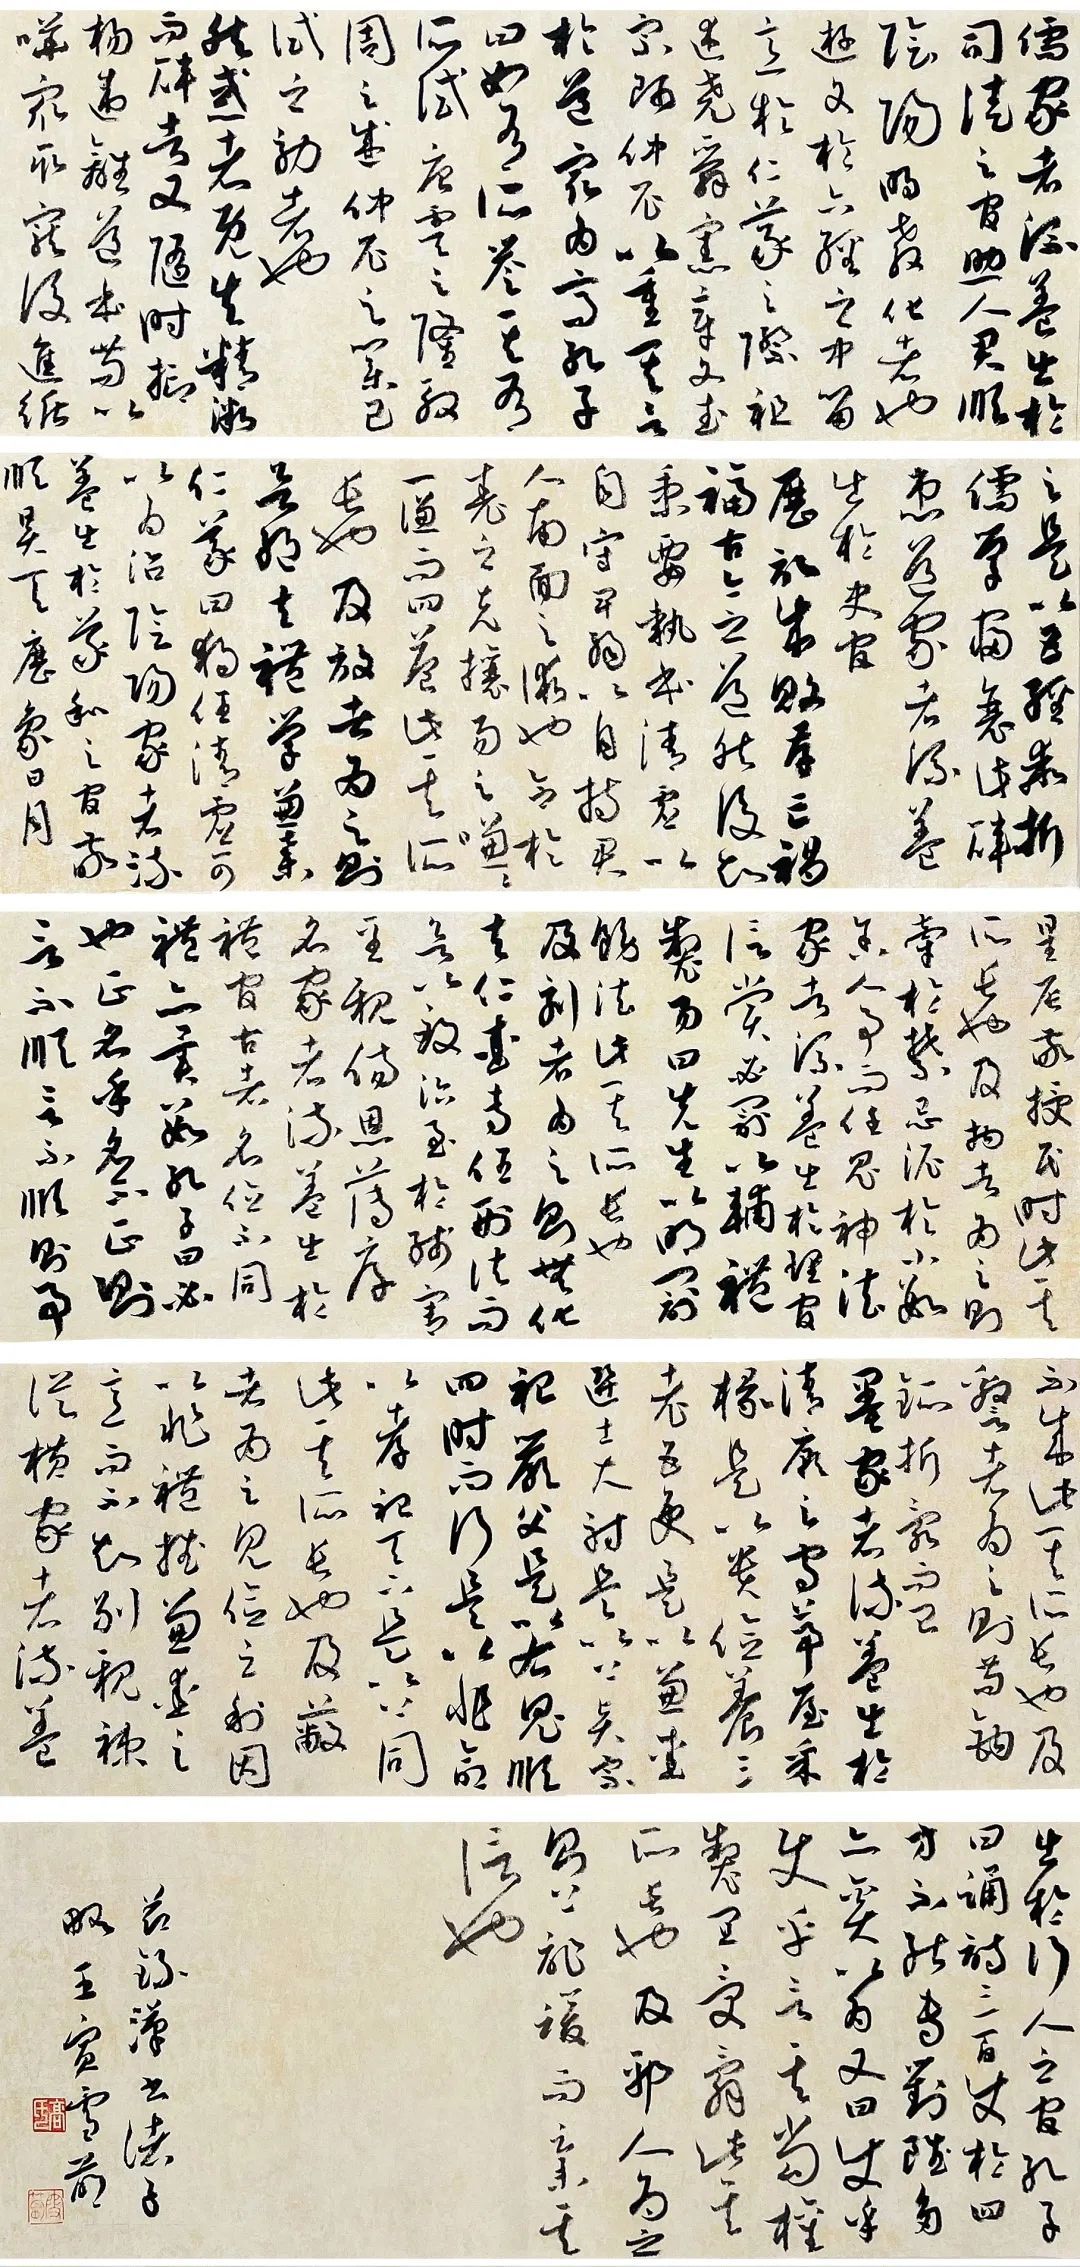 儒家者流蓋出於
司徒之官助人君順
陰陽明教化者也
遊文於六經之中留
意於仁義之際祖
述堯舜憲章文武
宗師仲尼以重其言
於道最為高孔子
曰如有所譽其有
所試唐虞之隆殷
周之盛仲尼之業已
試之効者也
然惑者既失精微
而辟者又隨時抑
揚違離道本苟以
嘩衆取寵後進循
之是以五經乖析
儒學寖衰此辟
患道家者流蓋
出於史官
歷記成敗存亡禍
福古今之道然後知
秉要執本清虛以
自守卑弱以自持君
人南面之術也合於
堯之克攘易之嗛〻
一謙而四益此其所
長也及放者為之則
欲絕去禮學兼棄
仁義曰獨任清虛可
以為治陰陽家者流
蓋出於羲和之官敬
順昊天歷象日月
星辰敬授民時此其
所長也及拘者為之則
牽於禁忌泥於小數
舍人事而任鬼神法
家者流蓋出於理官
信賞必罰以輔禮
製易曰先王以明罰
飭法此其所長也
及刻者為之則無化
去仁愛專任刑法而
欲以致治至於殘害
至親傷恩薄厚
名家者流蓋出於
禮官古者名位不同
禮亦異數孔子曰必
也正名乎名不正則
言不順言不順則事
不成此其所長也及
警者為之則苟鈎
鈲析亂而已
墨家者流蓋出於
清廟之守茅屋采
椽是以貴儉養三
老五更是以兼愛
選士大射是以上賢宗
祀嚴父是以右鬼順
四時而行是以非命
以孝視天下是以上同
此其所長也及蔽
者為之見儉之利因
以非禮推兼愛之
意而不知別親疎
從橫家者流蓋
出於行人之官孔子
曰誦詩三百使於四
方不能專對雖多
亦奚以為又曰使乎
使乎言其當權
製宜受辭此其
所長也及邪人為之
則上詐諼而棄其
信也
節錄漢書諸子
略壬寅雪萌